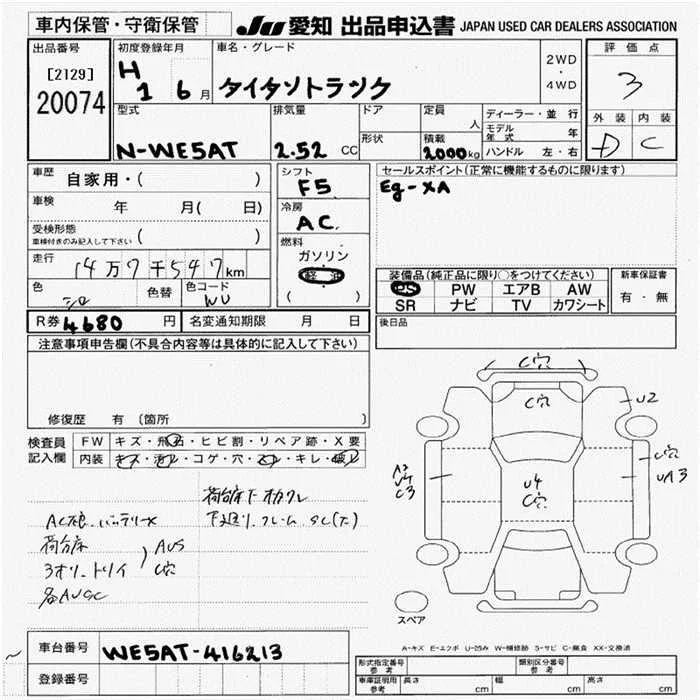 車内保管・守衛保管
JU 愛知 出品申込書 JAPAN USED CAR DEALERS ASSOCIATION
出品番号
[2129]
20074
初度登録年月
H 1 6 月
車名・グレード
タイタントラック
2WD
・
4WD
評価点
3
外装 内装
D C
型式
N-WE5AT
排気量
2.52 CC
ドア
形状
定員 人
積載
2000kg
ディーラー・並行
モデル年式 年
ハンドル 左・右
車歴 自家用・( )
車検 年 月( 日)
受検形態
車検付きのみ記入して下さい ( )
走行 14万7千547km
色 シロ 色替 色コード WU
シフト
F5
冷房
AC
燃料
ガソリン
軽油
( )
セールスポイント(正常に機能するものに限ります)
Eg-XA
装備品(純正品に限り○をつけてください)
PS PW エアB AW
SR ナビ TV カワシート
新車保証書
有・無
後日品
R券 4680 円 名変通知期限 月 日
注意事項申告欄(不具合内容等は具体的に記入して下さい)
修復歴 有 (箇所 )
検査員記入欄
FW キズ・飛石・ヒビ割・リペア跡・X要
内装 キズ・汚レ・コゲ・穴・ヌレ・キレ・破レ
荷台床下オカクレ
下廻り.フレーム SC(大)
バッテリーX
荷台床
3オリ.トリイ
AUS
C穴
C穴
C穴
U2
C穴
UA3
A2
U4
C3
U4
C穴
スペア
A-キズ E-エクボ U-凹み W-補修跡 S-サビ C-腐食 XX-交換済
車台番号 WE5AT-416213
登録番号
形式指定番号 参考
類別区分番号 参考
車庫証明用 参考
長さ cm 幅 cm 高さ cm